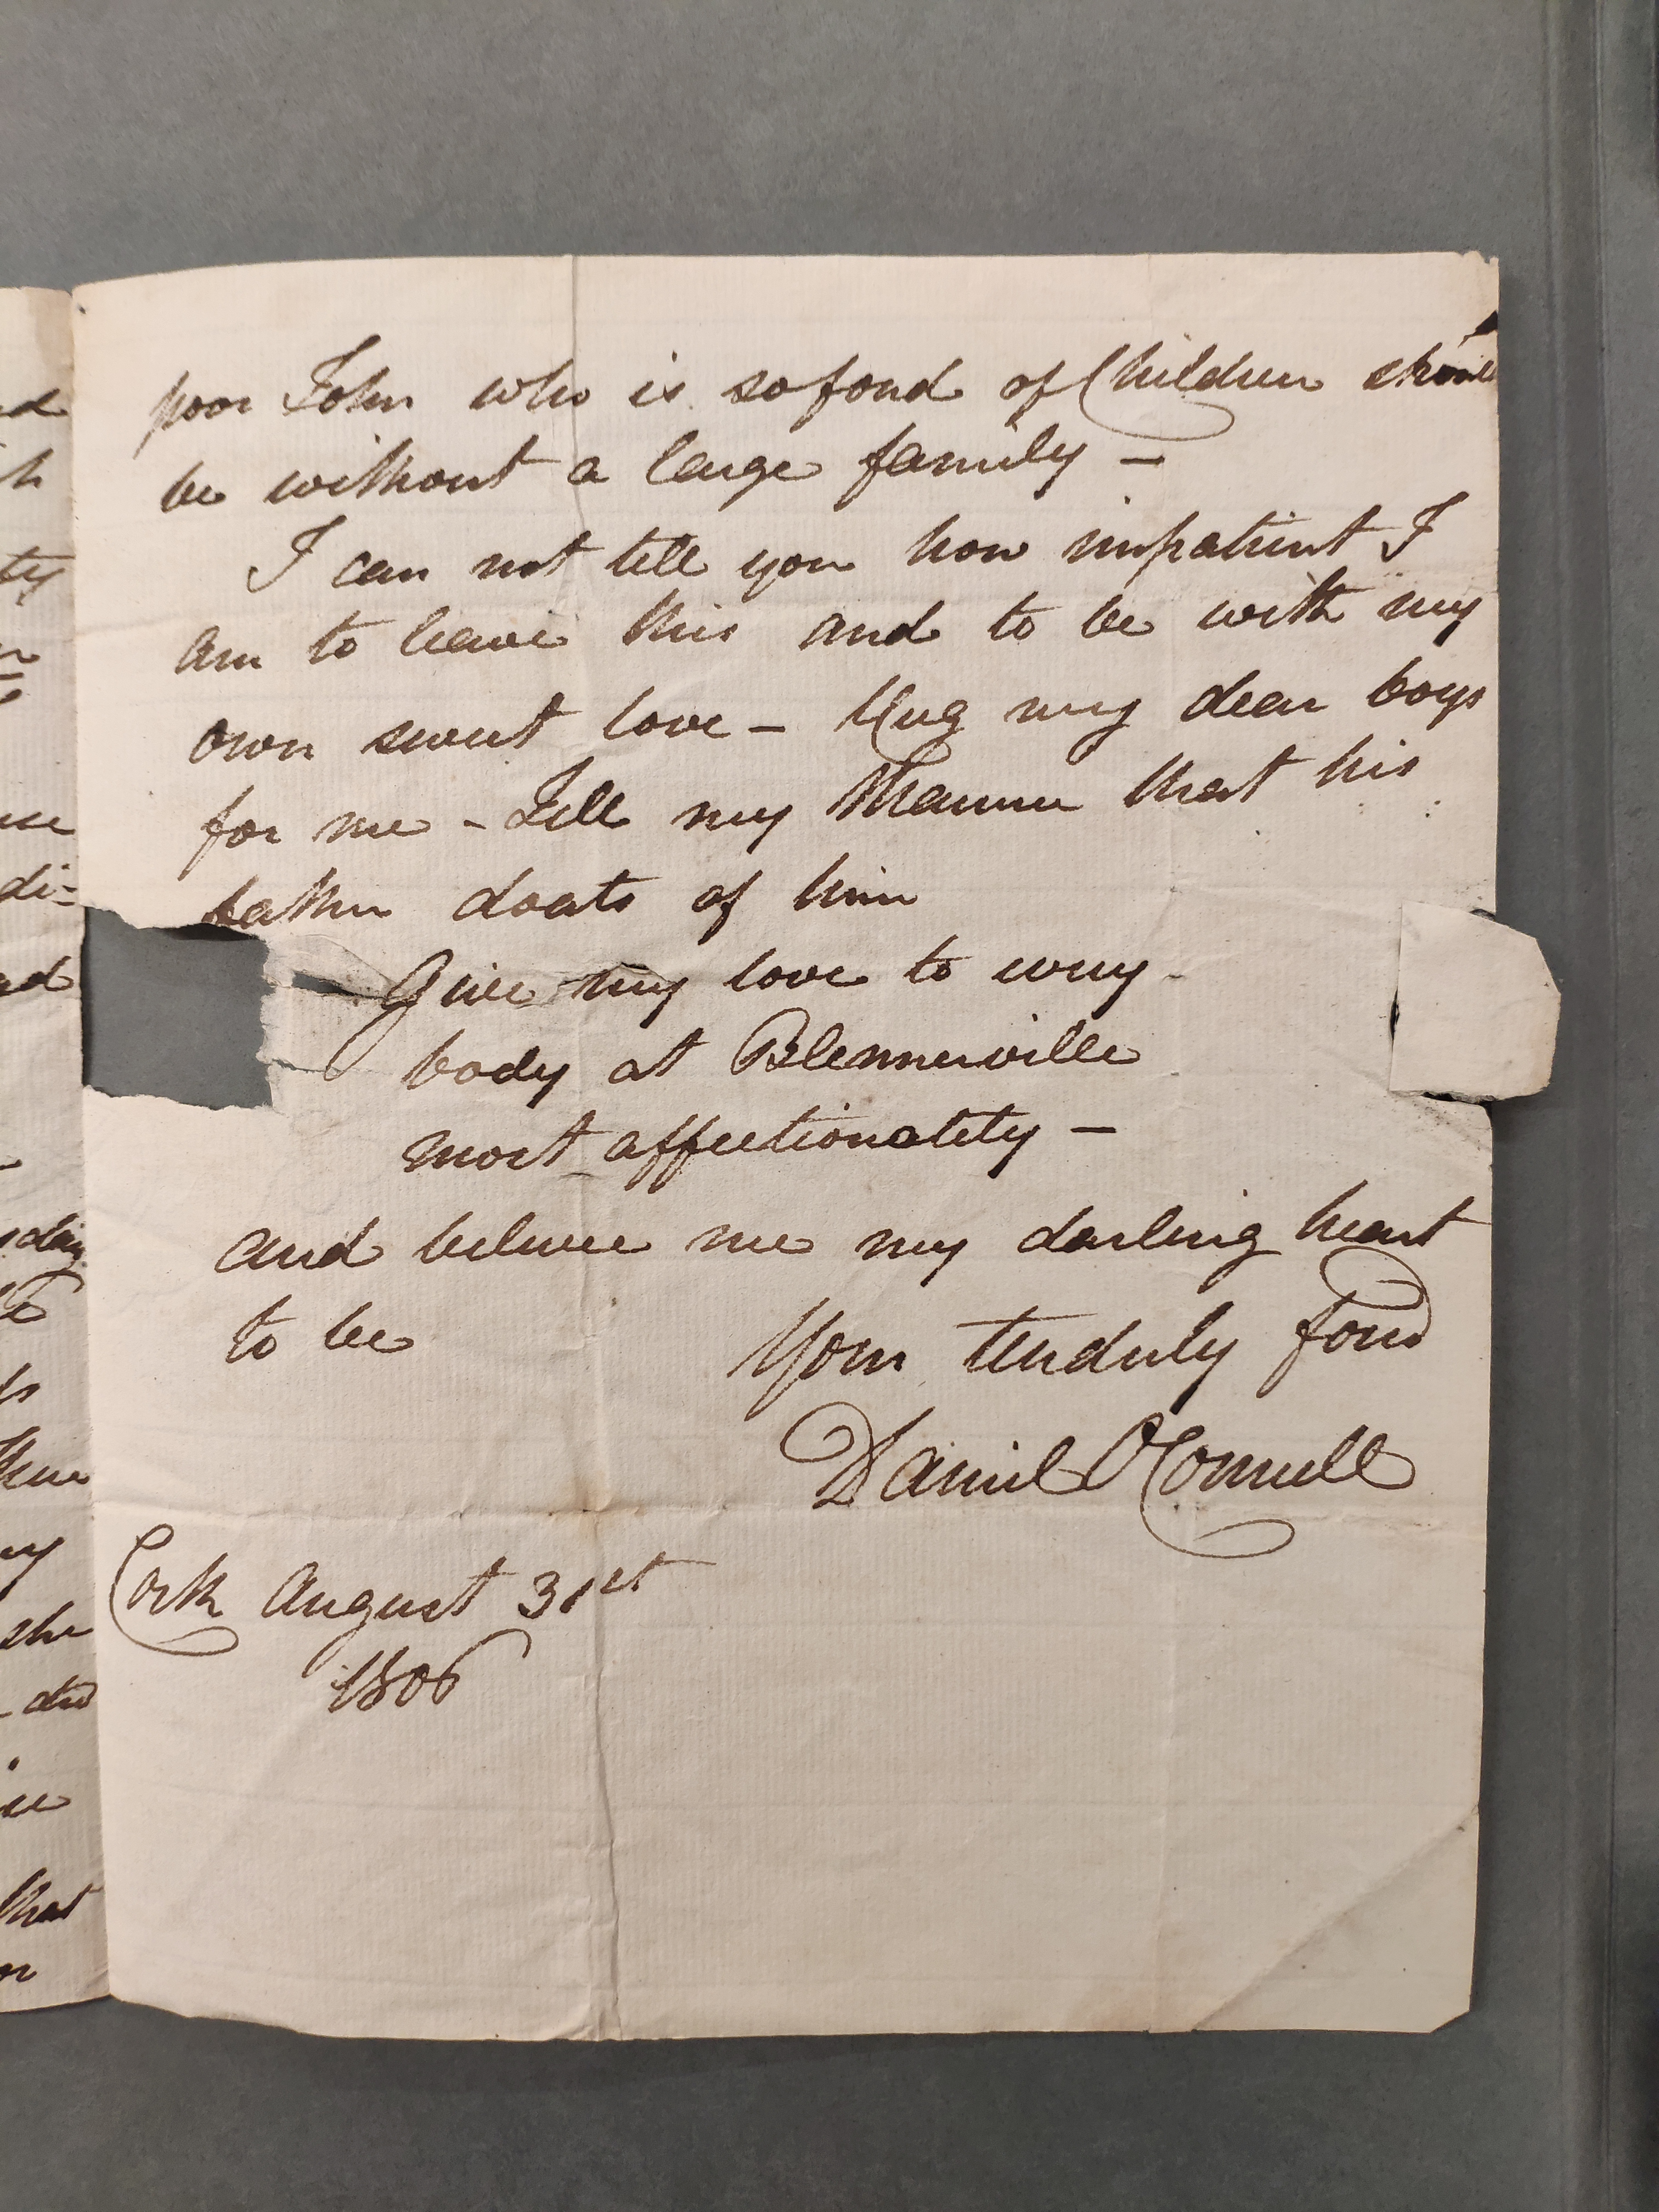 poor John who is so fond of Children should
be without a large family –
I can not tell you how impatient I
am to leave this and to be with my
own sweet love – Hug my dear boys
for me – Tell my Maurice that his
father doats of him
Give my love to every
body at Blennerville
most affectionately –
and believe me my darling heart
to be Your tenderly fond
Daniel O'Connell
Cork August 31st
1806